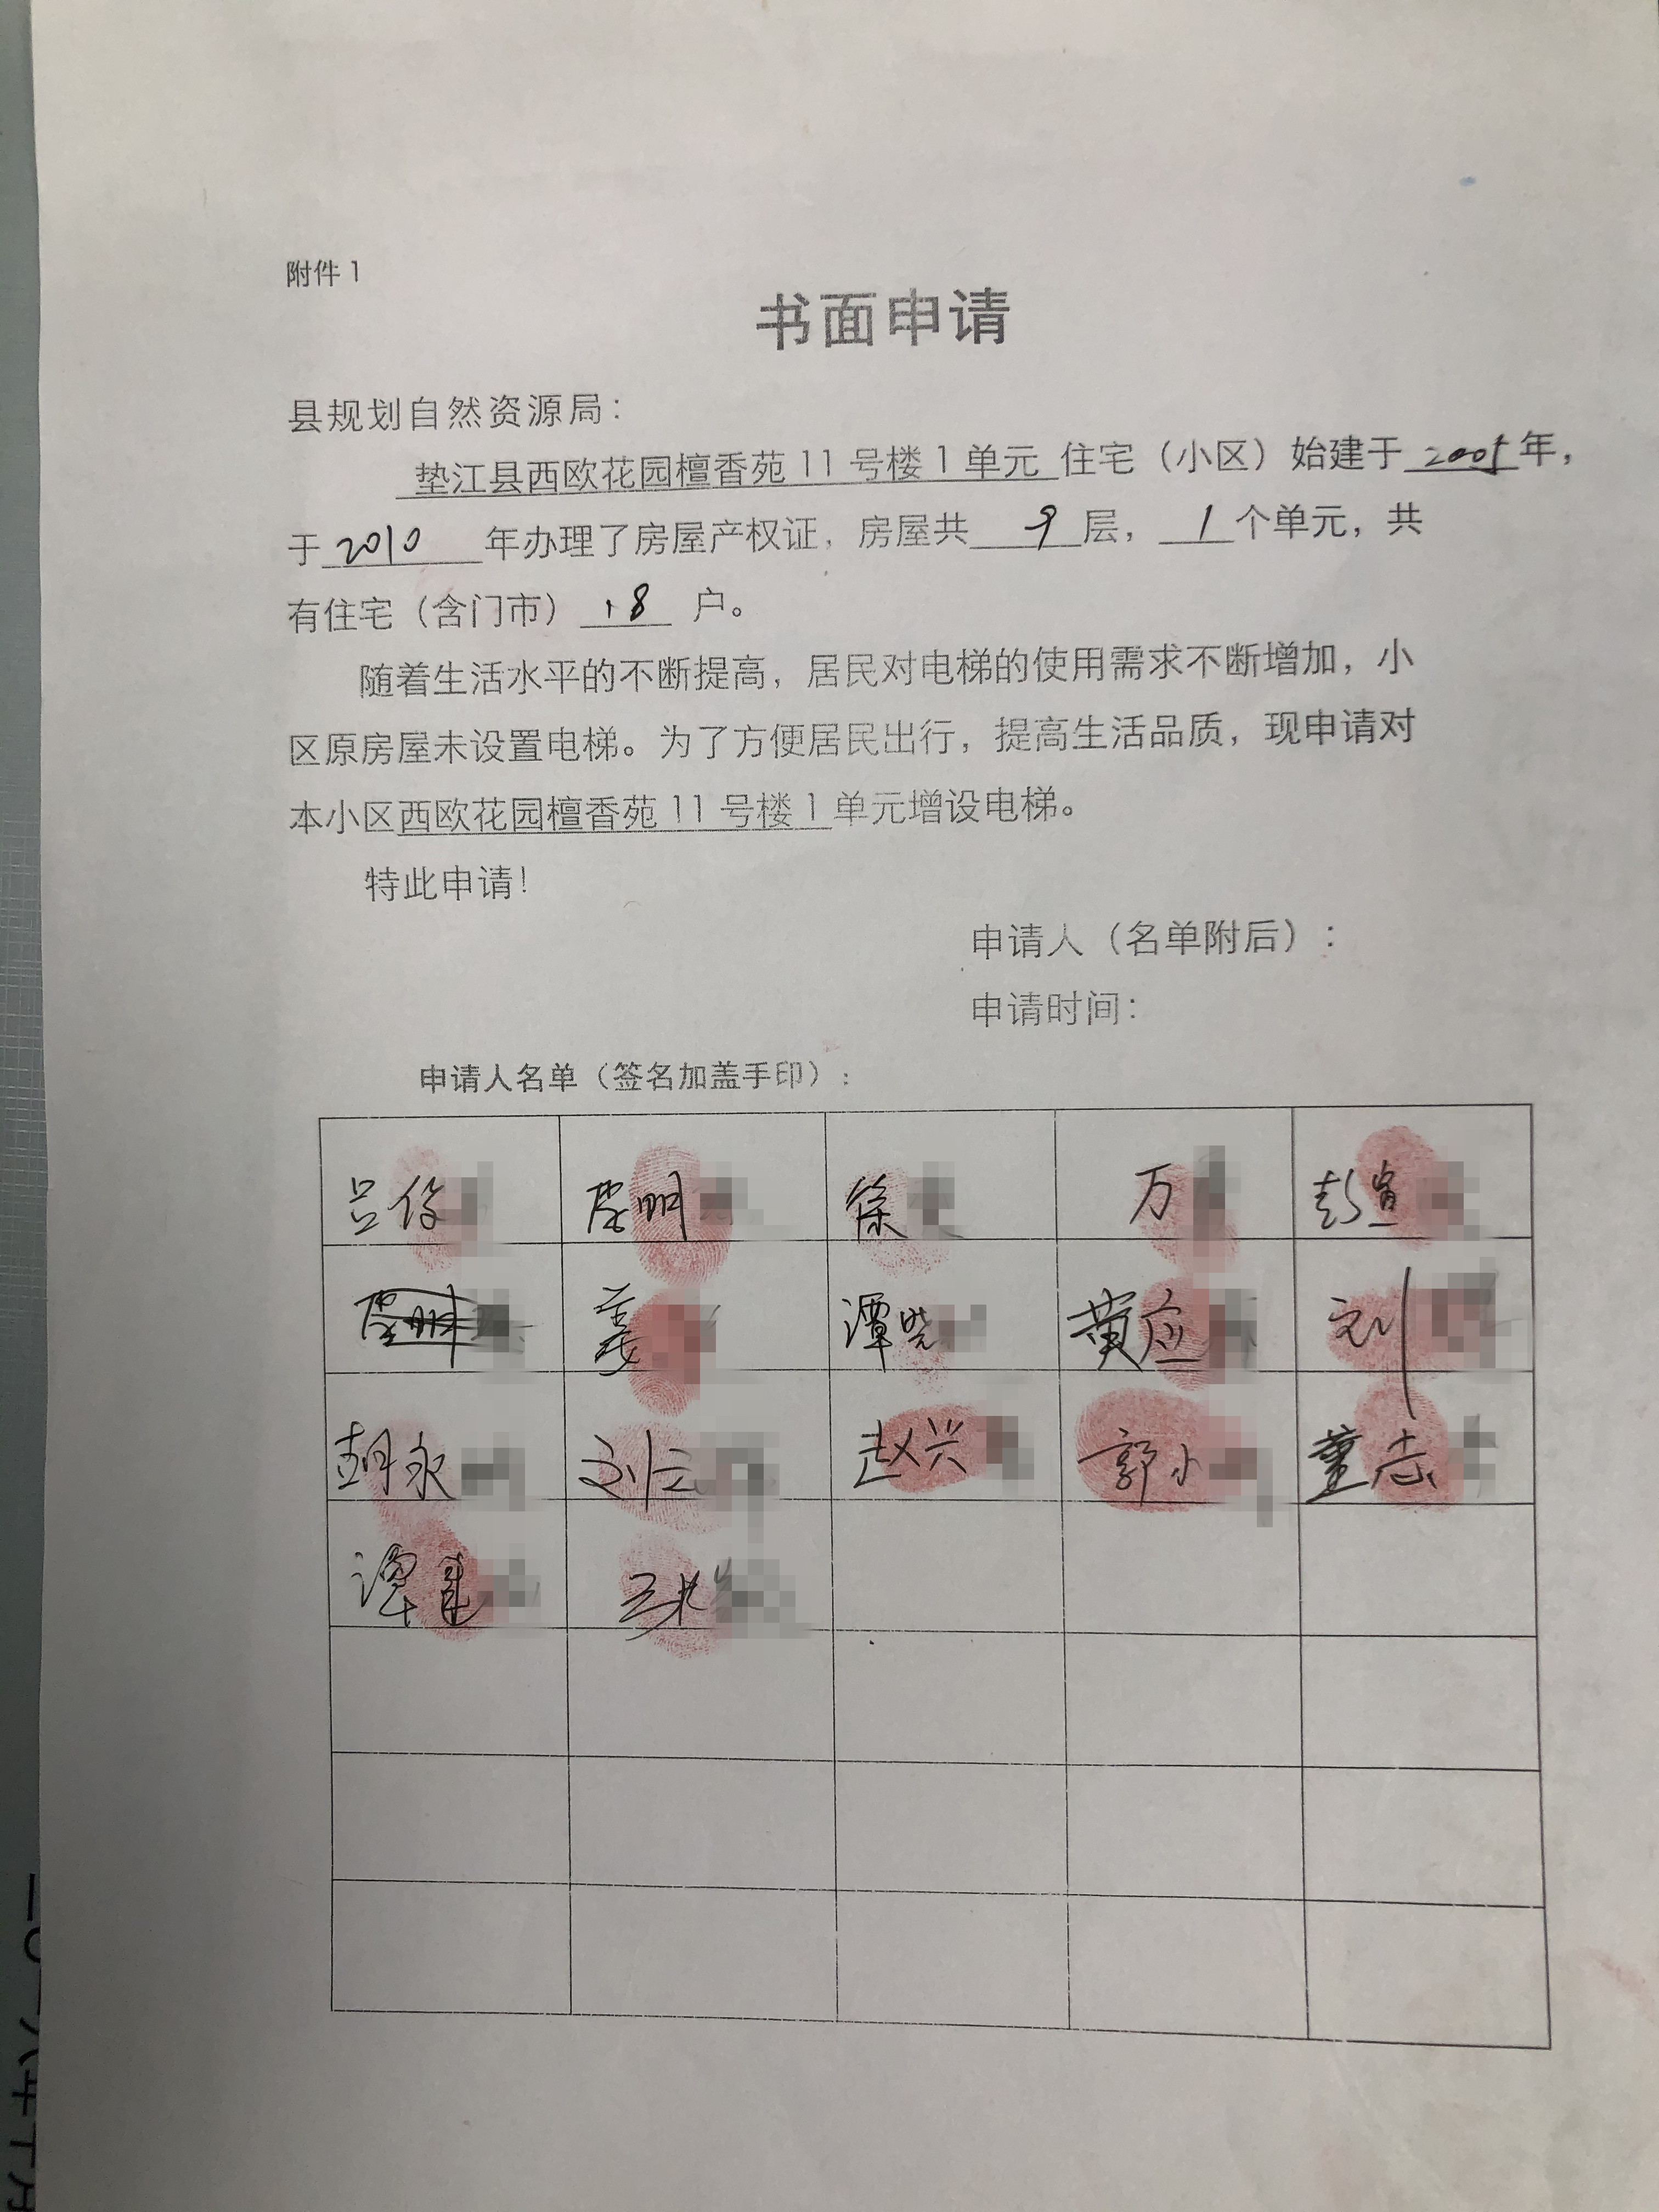 附件1
书面申请
县规划自然资源局：
垫江县西欧花园檀香苑11号楼1单元 住宅（小区）始建于2005年，
于2010年办理了房屋产权证，房屋共9层，1个单元，共
有住宅（含门市）18户。
随着生活水平的不断提高，居民对电梯的使用需求不断增加，小
区原房屋未设置电梯。为了方便居民出行，提高生活品质，现申请对
本小区西欧花园檀香苑11号楼1单元增设电梯。
特此申请！
申请人（名单附后）：
申请时间：
申请人名单（签名加盖手印）：
吕 明 徐 万 彭
姜 谭晓 黄应 刘
永 刘 赵兴 郭小 董志
谭